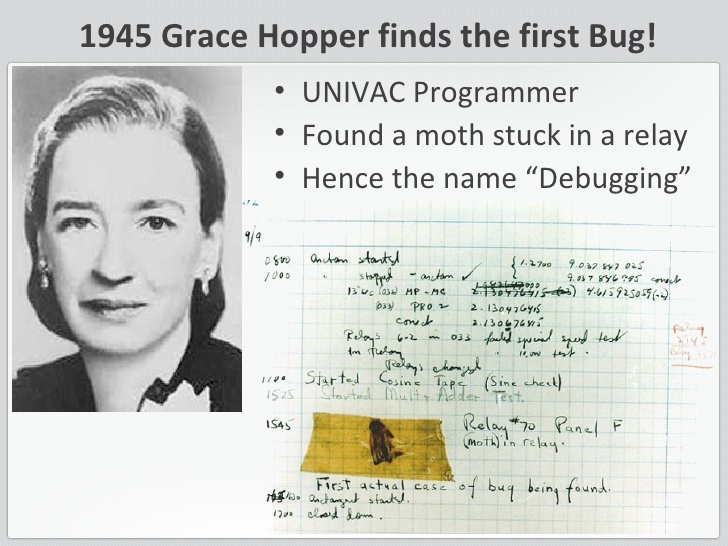 1945 Grace Hopper finds the first Bug!
• UNIVAC Programmer
• Found a moth stuck in a relay
• Hence the name “Debugging”
9/9
0800 Antan started
1000 " stopped - antan ✓ { 1.2700 9.037 847 025
9.037 846 995 correct
13"uc (032) MP-MC 2.130476415 4.615925059(-2)
(033) PRO 2 2.130476415
correct 2.130676415
Relays 6-2 in 033 failed special speed test
in Relay " 11.00 test .
Relay
Relays changed
1100 Started Cosine Tape (Sine check)
1525 Started Mult+Adder Test.
1545 Relay #70 Panel F
(moth) in relay.
First actual case of bug being found.
1630 antangent started.
1700 closed down.